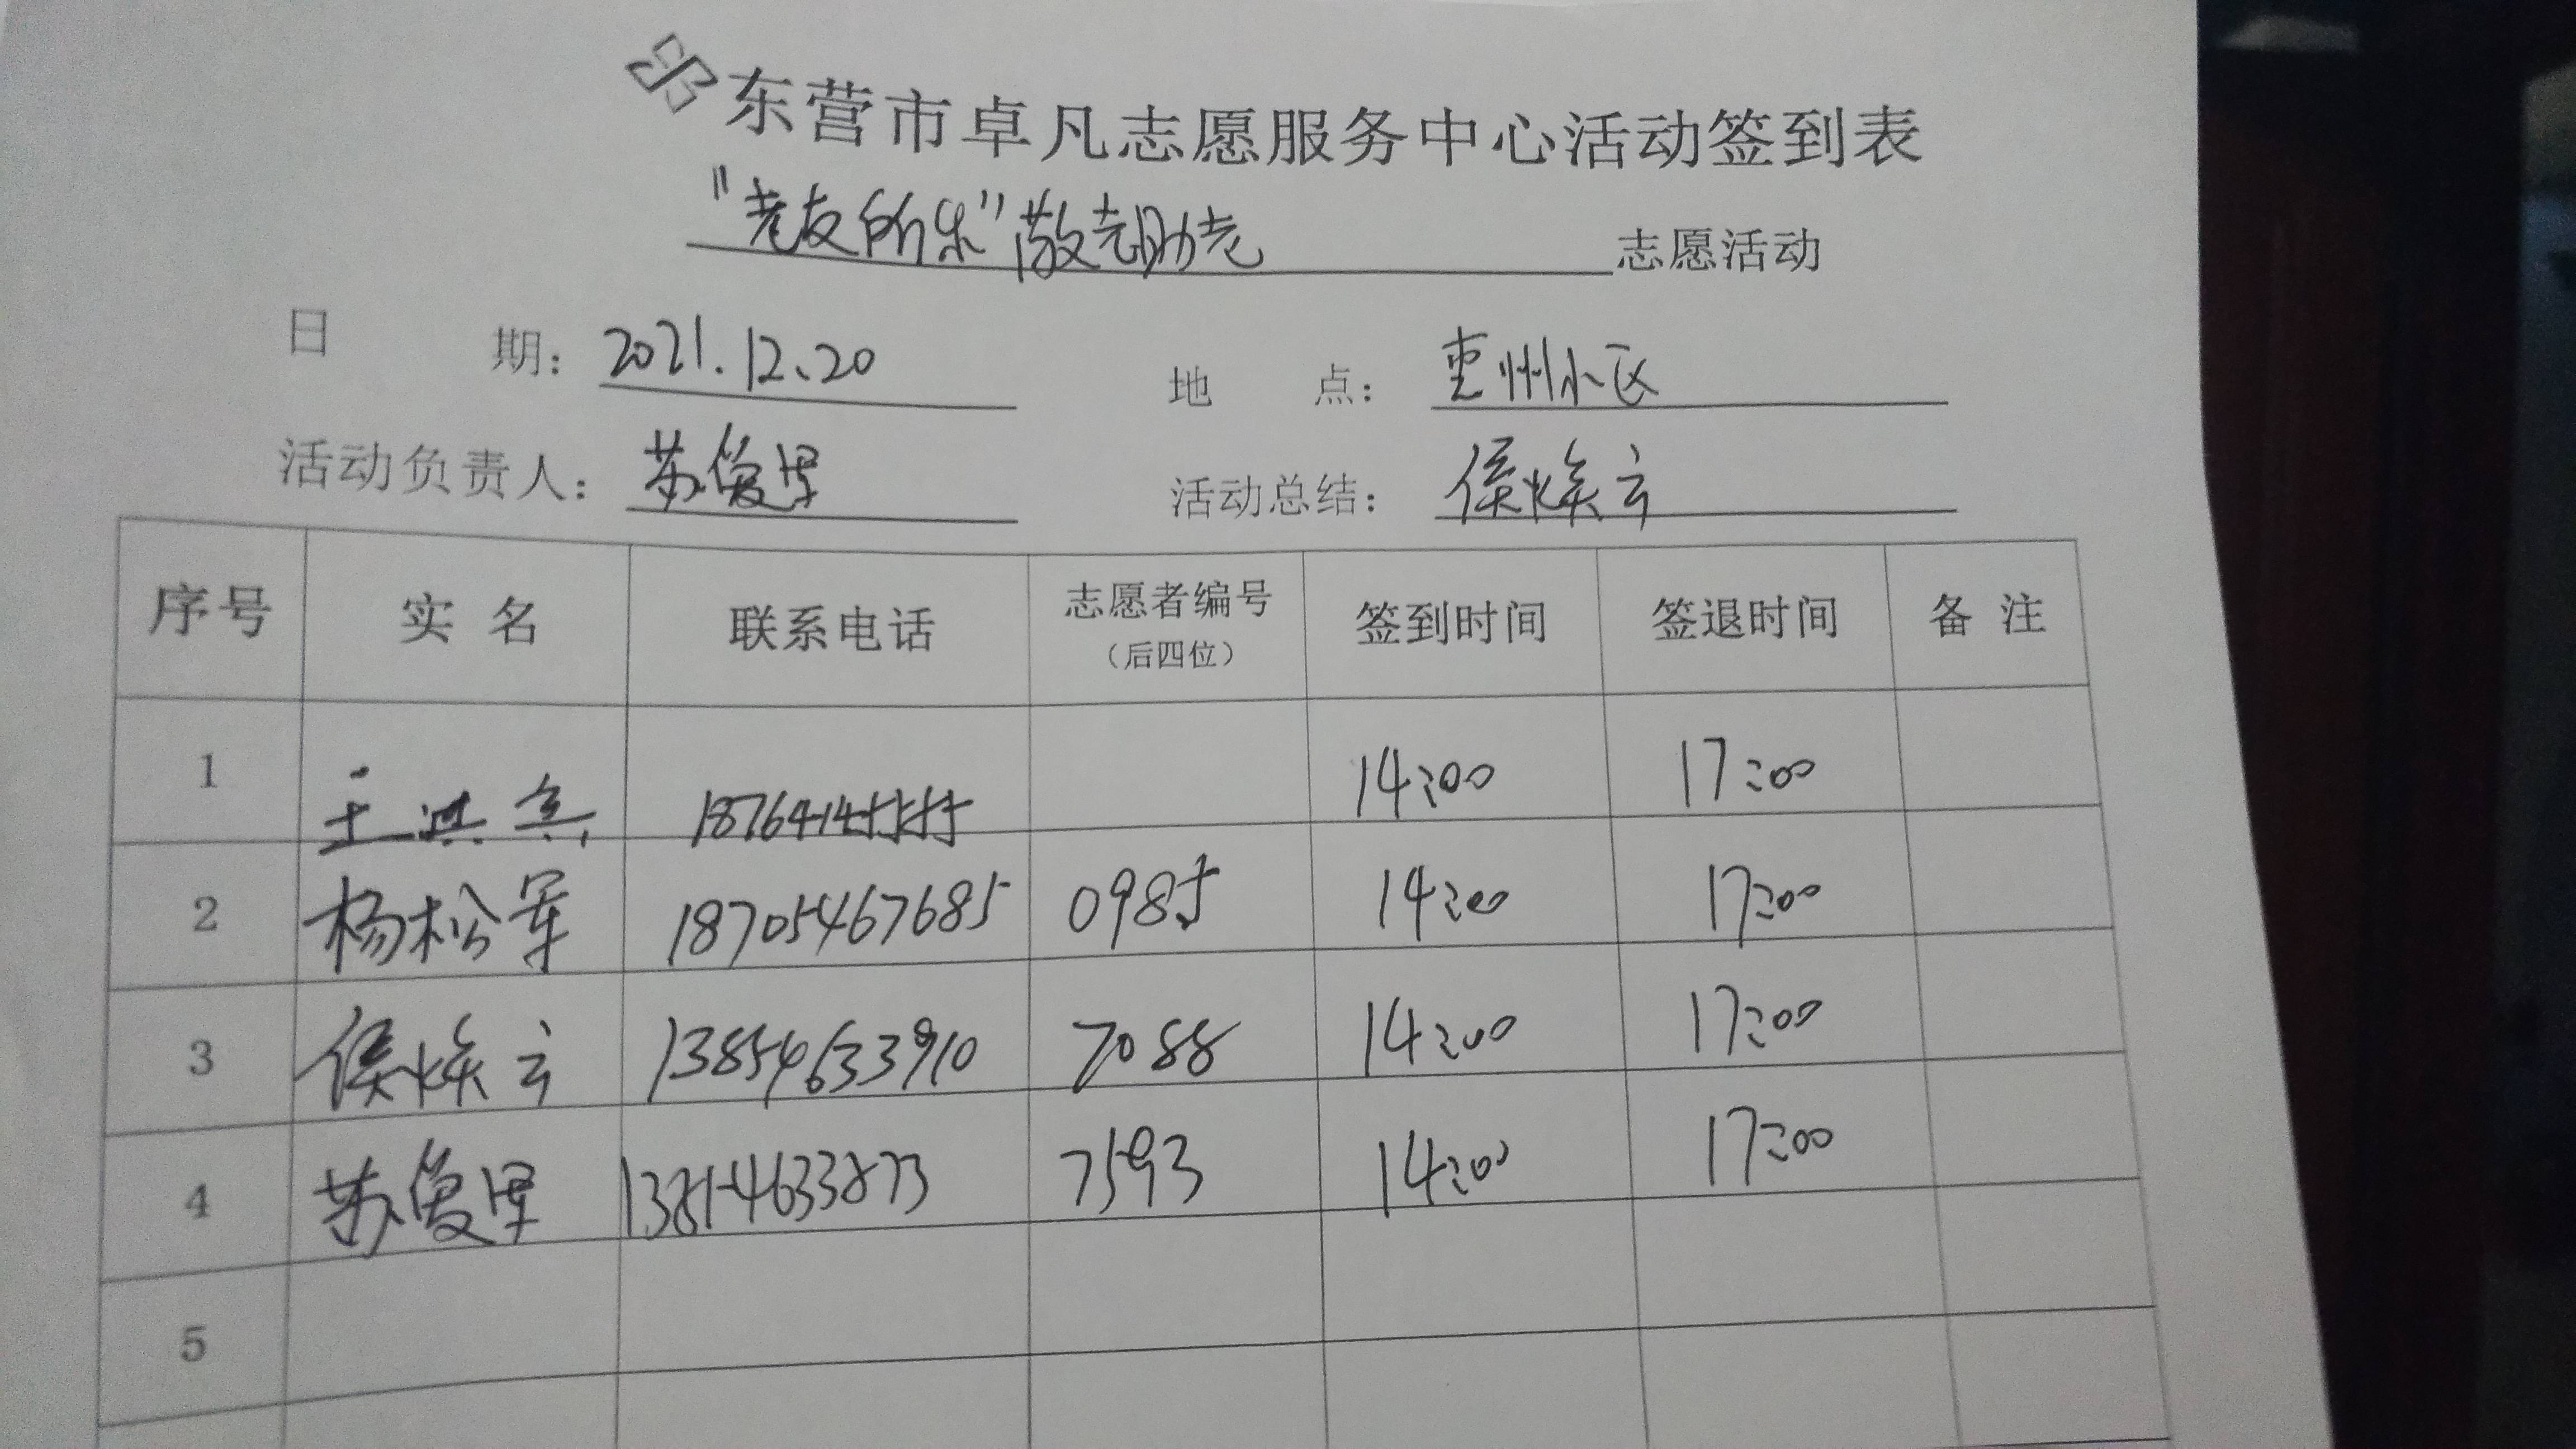 东营市卓凡志愿服务中心活动签到表
"老友所乐"敬老助老 志愿活动
日 期: 2021.12.20 地 点: 惠州小区
活动负责人: 苏俊军 活动总结: 侯焕云
序号 实 名 联系电话 志愿者编号 (后四位) 签到时间 签退时间 备 注
1 王洪 14:00 17:00
2 杨松军 18705467685 0985 14:00 17:00
3 侯焕云 13854633910 7088 14:00 17:00
4 苏俊 13854633873 7593 14:00 17:00
5